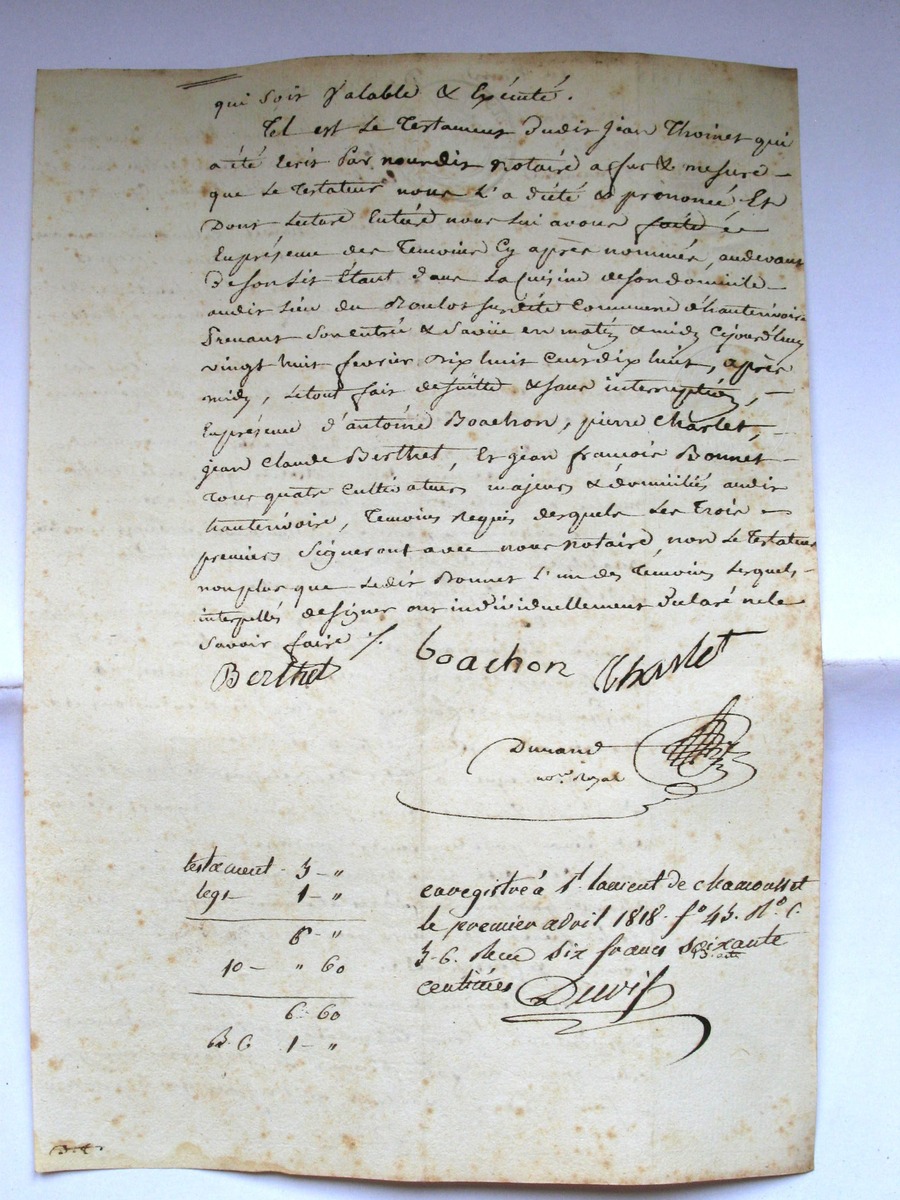 qui soit Valable & Exécuté.
Tel est Le Testament dudit Jean Thoinet qui
a été Ecrit Par nousdit Notaire a fur & mesure
que Le Testateur nous L'a dicté & prononcé Et
Dont Lecture Entiere nous Lui avons faite
En présence des Temoins Cy après nommés, audevant
De son Lit Etant dans La Cuisine de son domicile
audit Lieu du susdite Commune d'hauterivoire
Prenant son entrée & Savüe en matin & midy Cejourd'huy
vingt huit fevrier dix huit Cent dix huit, après
midy, Le tout fait de suitte & sans interruption,
En présence d'antoine Boachon, pierre Charlet,
jean Claude Berthet, Et jean francois Bonnet
Tous quatre Cultivateurs majeurs & domiciliés audit
hauterivoire, Temoins Requis desquels Les Trois
premiers Signeront avec nous Notaire, non Le Testateur
non plus que Ledit Bonnet L'un des Temoins Lesquels,
interpellés de signer ont individuellement Declaré ne le
Savoir faire ./.
Berthet boachon Charlet
Durand
no.re Royal
testament - 5 - "
legs - 1 - "
6 - "
10 - " 60
6 - 60
1 - "
enregistré à St laurent de chamousset
le premier avril 1818. fo 45. Ro C.
5-6. Recu six francs soixante
centimes